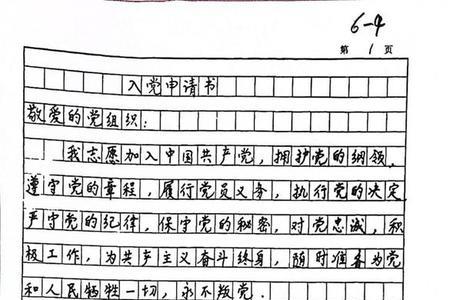 6-4
第 1 页
入党申请书
敬爱的党组织：
我志愿加入中国共产党，拥护党的纲领，
遵守党的章程，履行党员义务，执行党的决定
严守党的纪律，保守党的秘密，对党忠诚，积
极工作，为共产主义奋斗终身，随时准备为党
和人民牺牲一切，永不叛党．